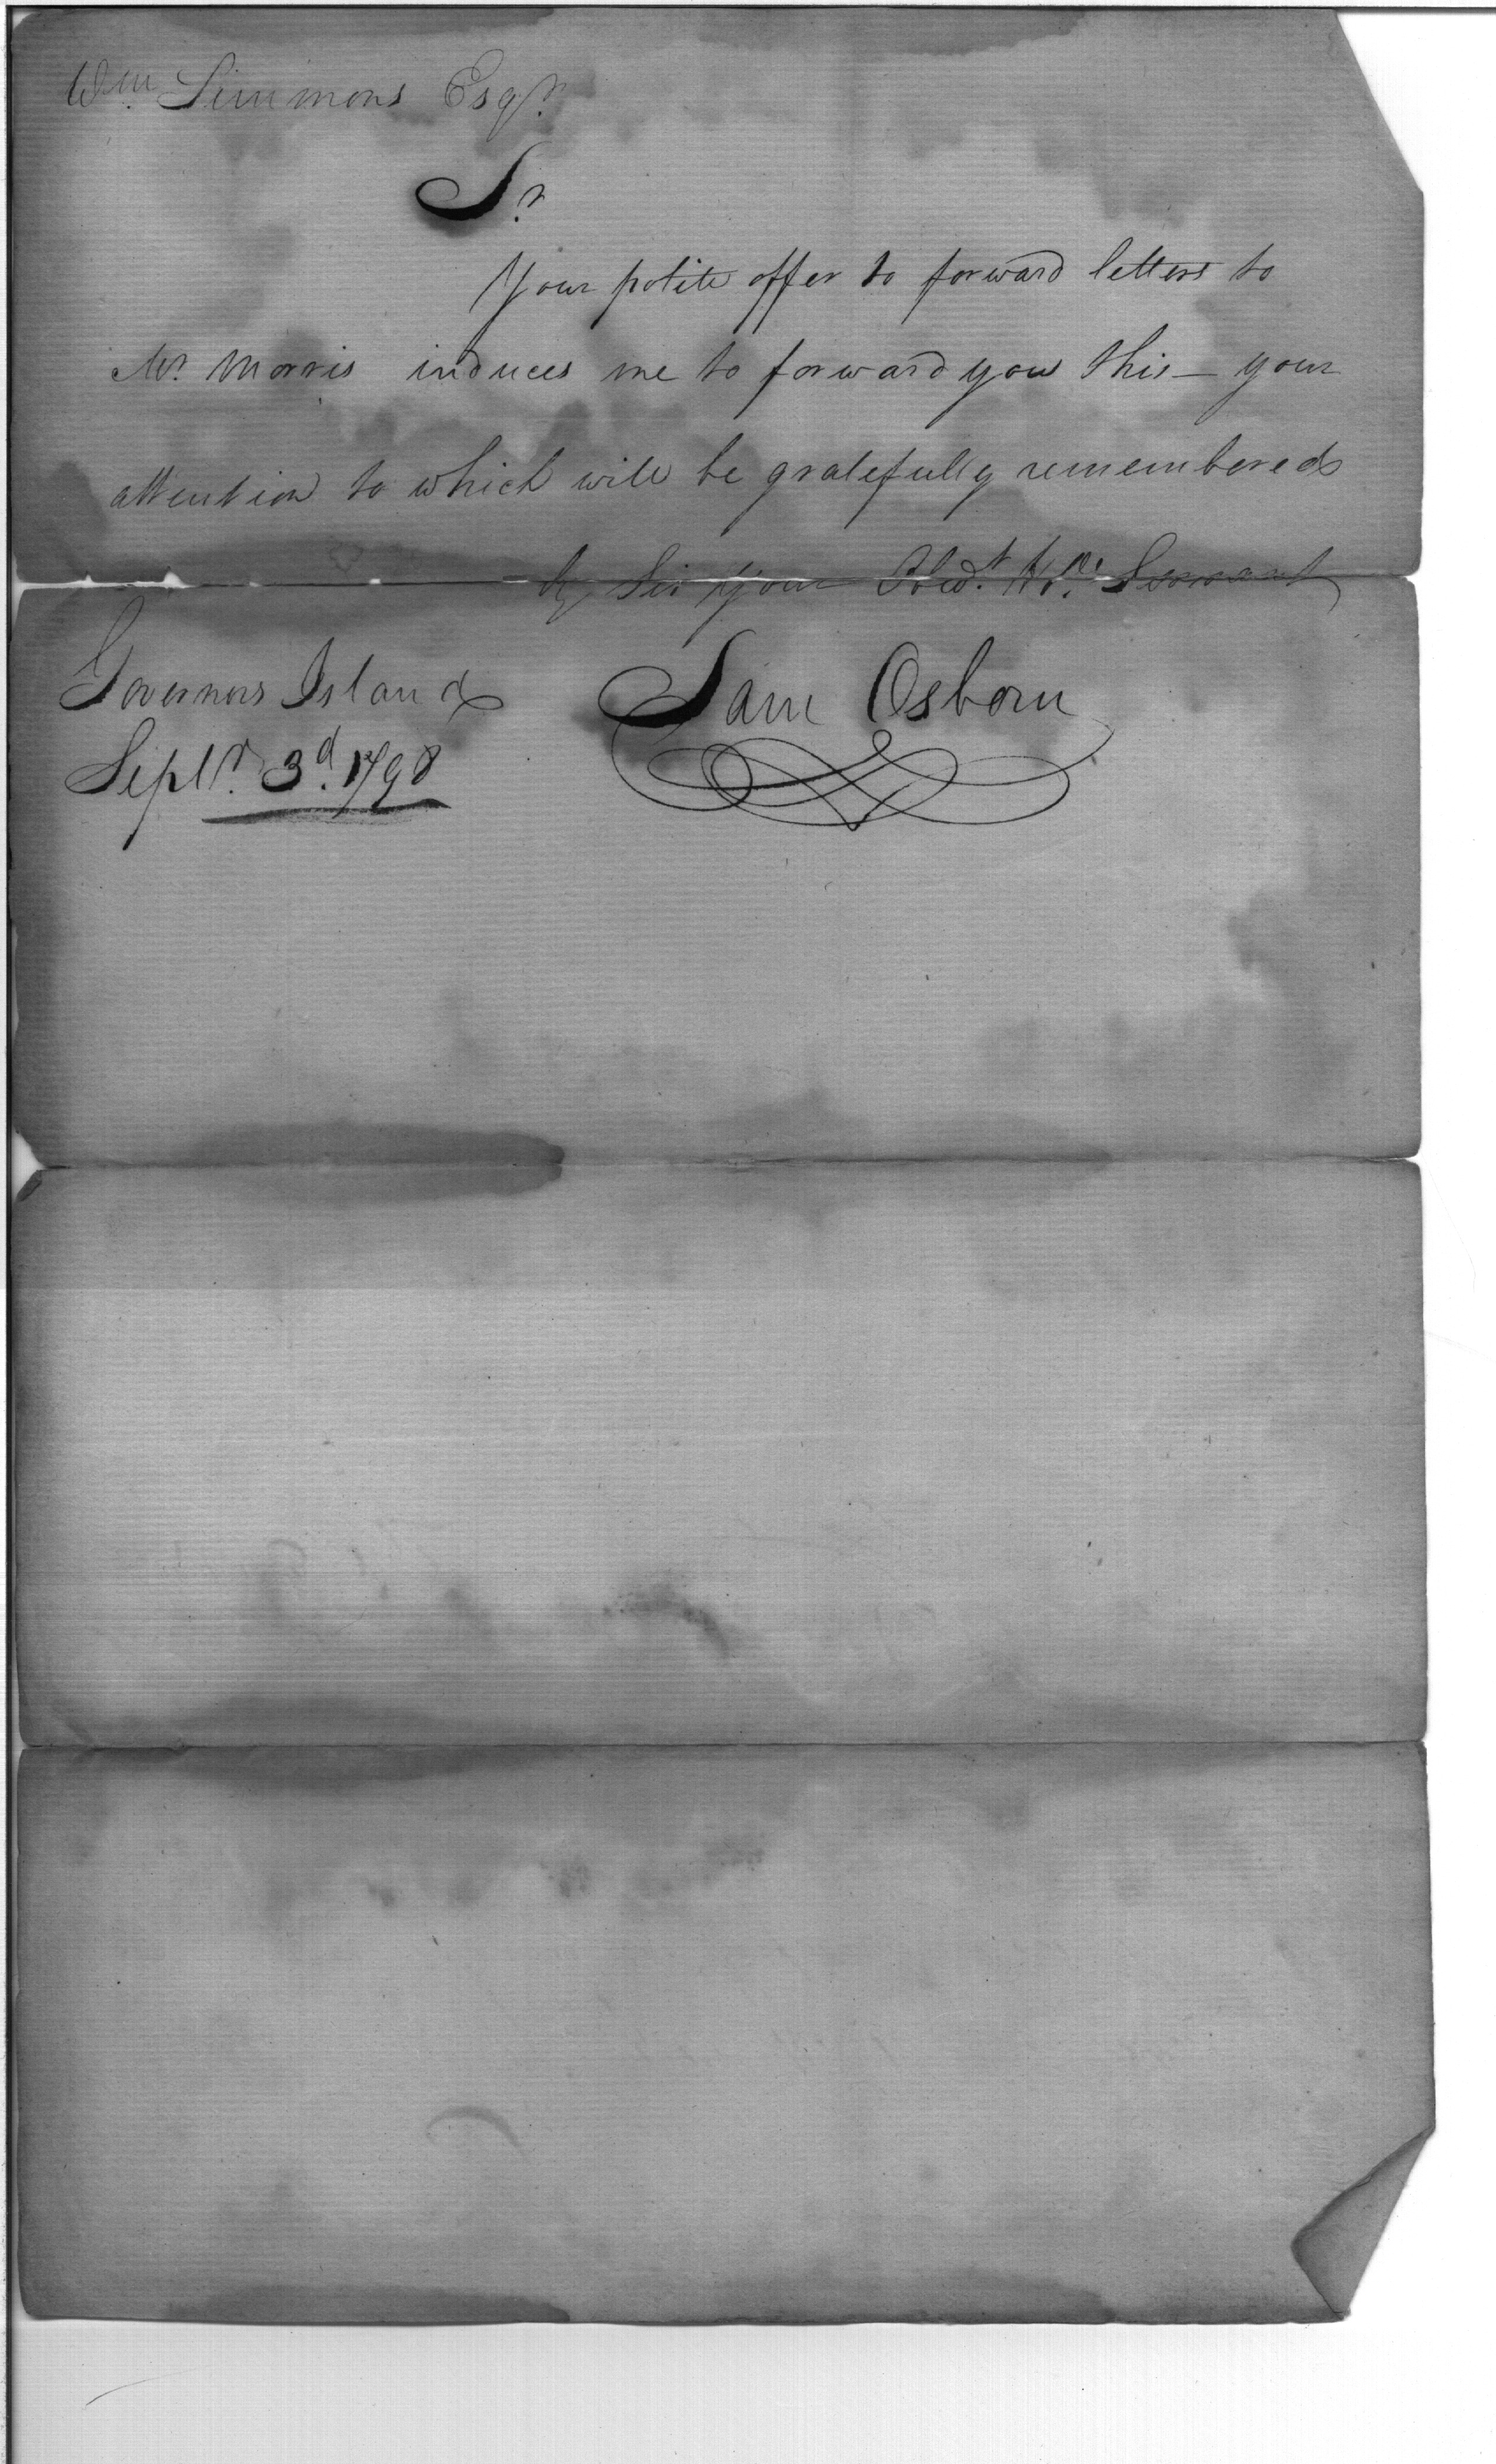 Wm. Simmons Esqr.
Sr.
Your polite offer to forward letters to
Mr. Morris induces me to forward you this — your
attention to which will be gratefully remembered
by Sir your Obdt. Hble. Servant
Sam Osborn
Governors Island
Septr. 3d. 1798